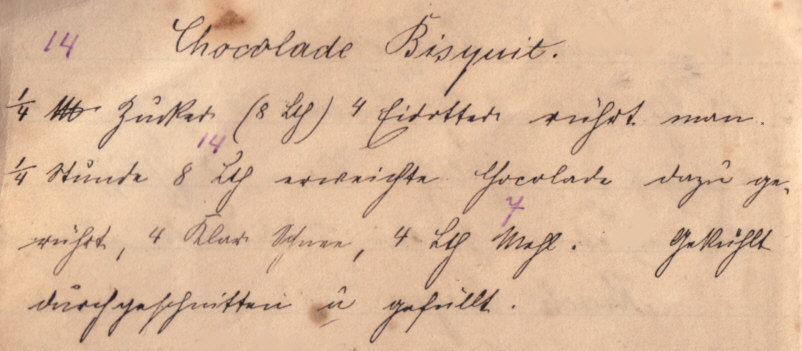 14 Chocolade Bisquit.
¼ Zucker (8 Lth) 4 Eidotter rührt man.
14
¼ Stunde 8 Lth erweichte Chocolade dazu ge-
7
rührt, 4 Klar Schnee, 4 Lth Mehl. Gekühlt
durchgeschnitten u gefüllt.